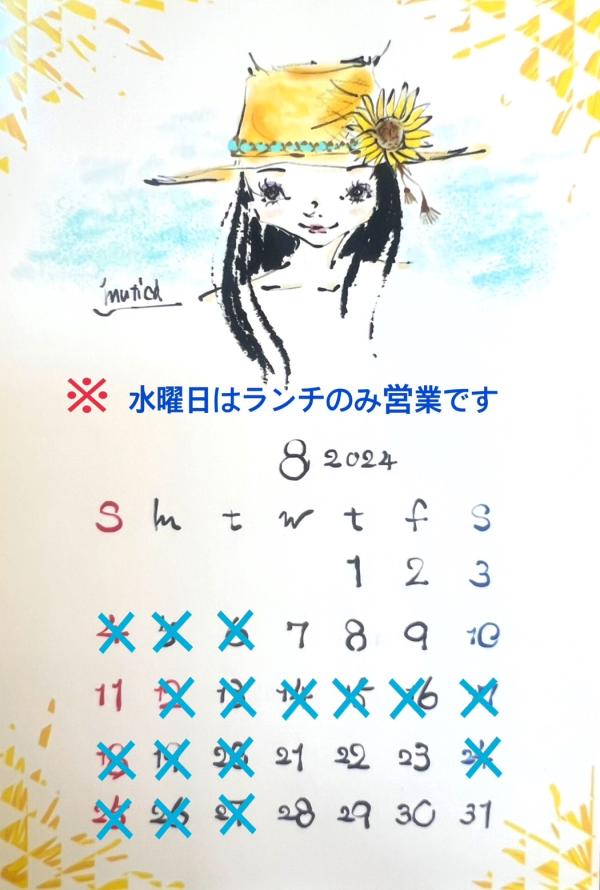 mutich
※ 水曜日はランチのみ営業です
8 2024
S m t w t f S
1 2 3
4 5 6 7 8 9 10
11 12 13 14 15 16 17
18 19 20 21 22 23 24
25 26 27 28 29 30 31